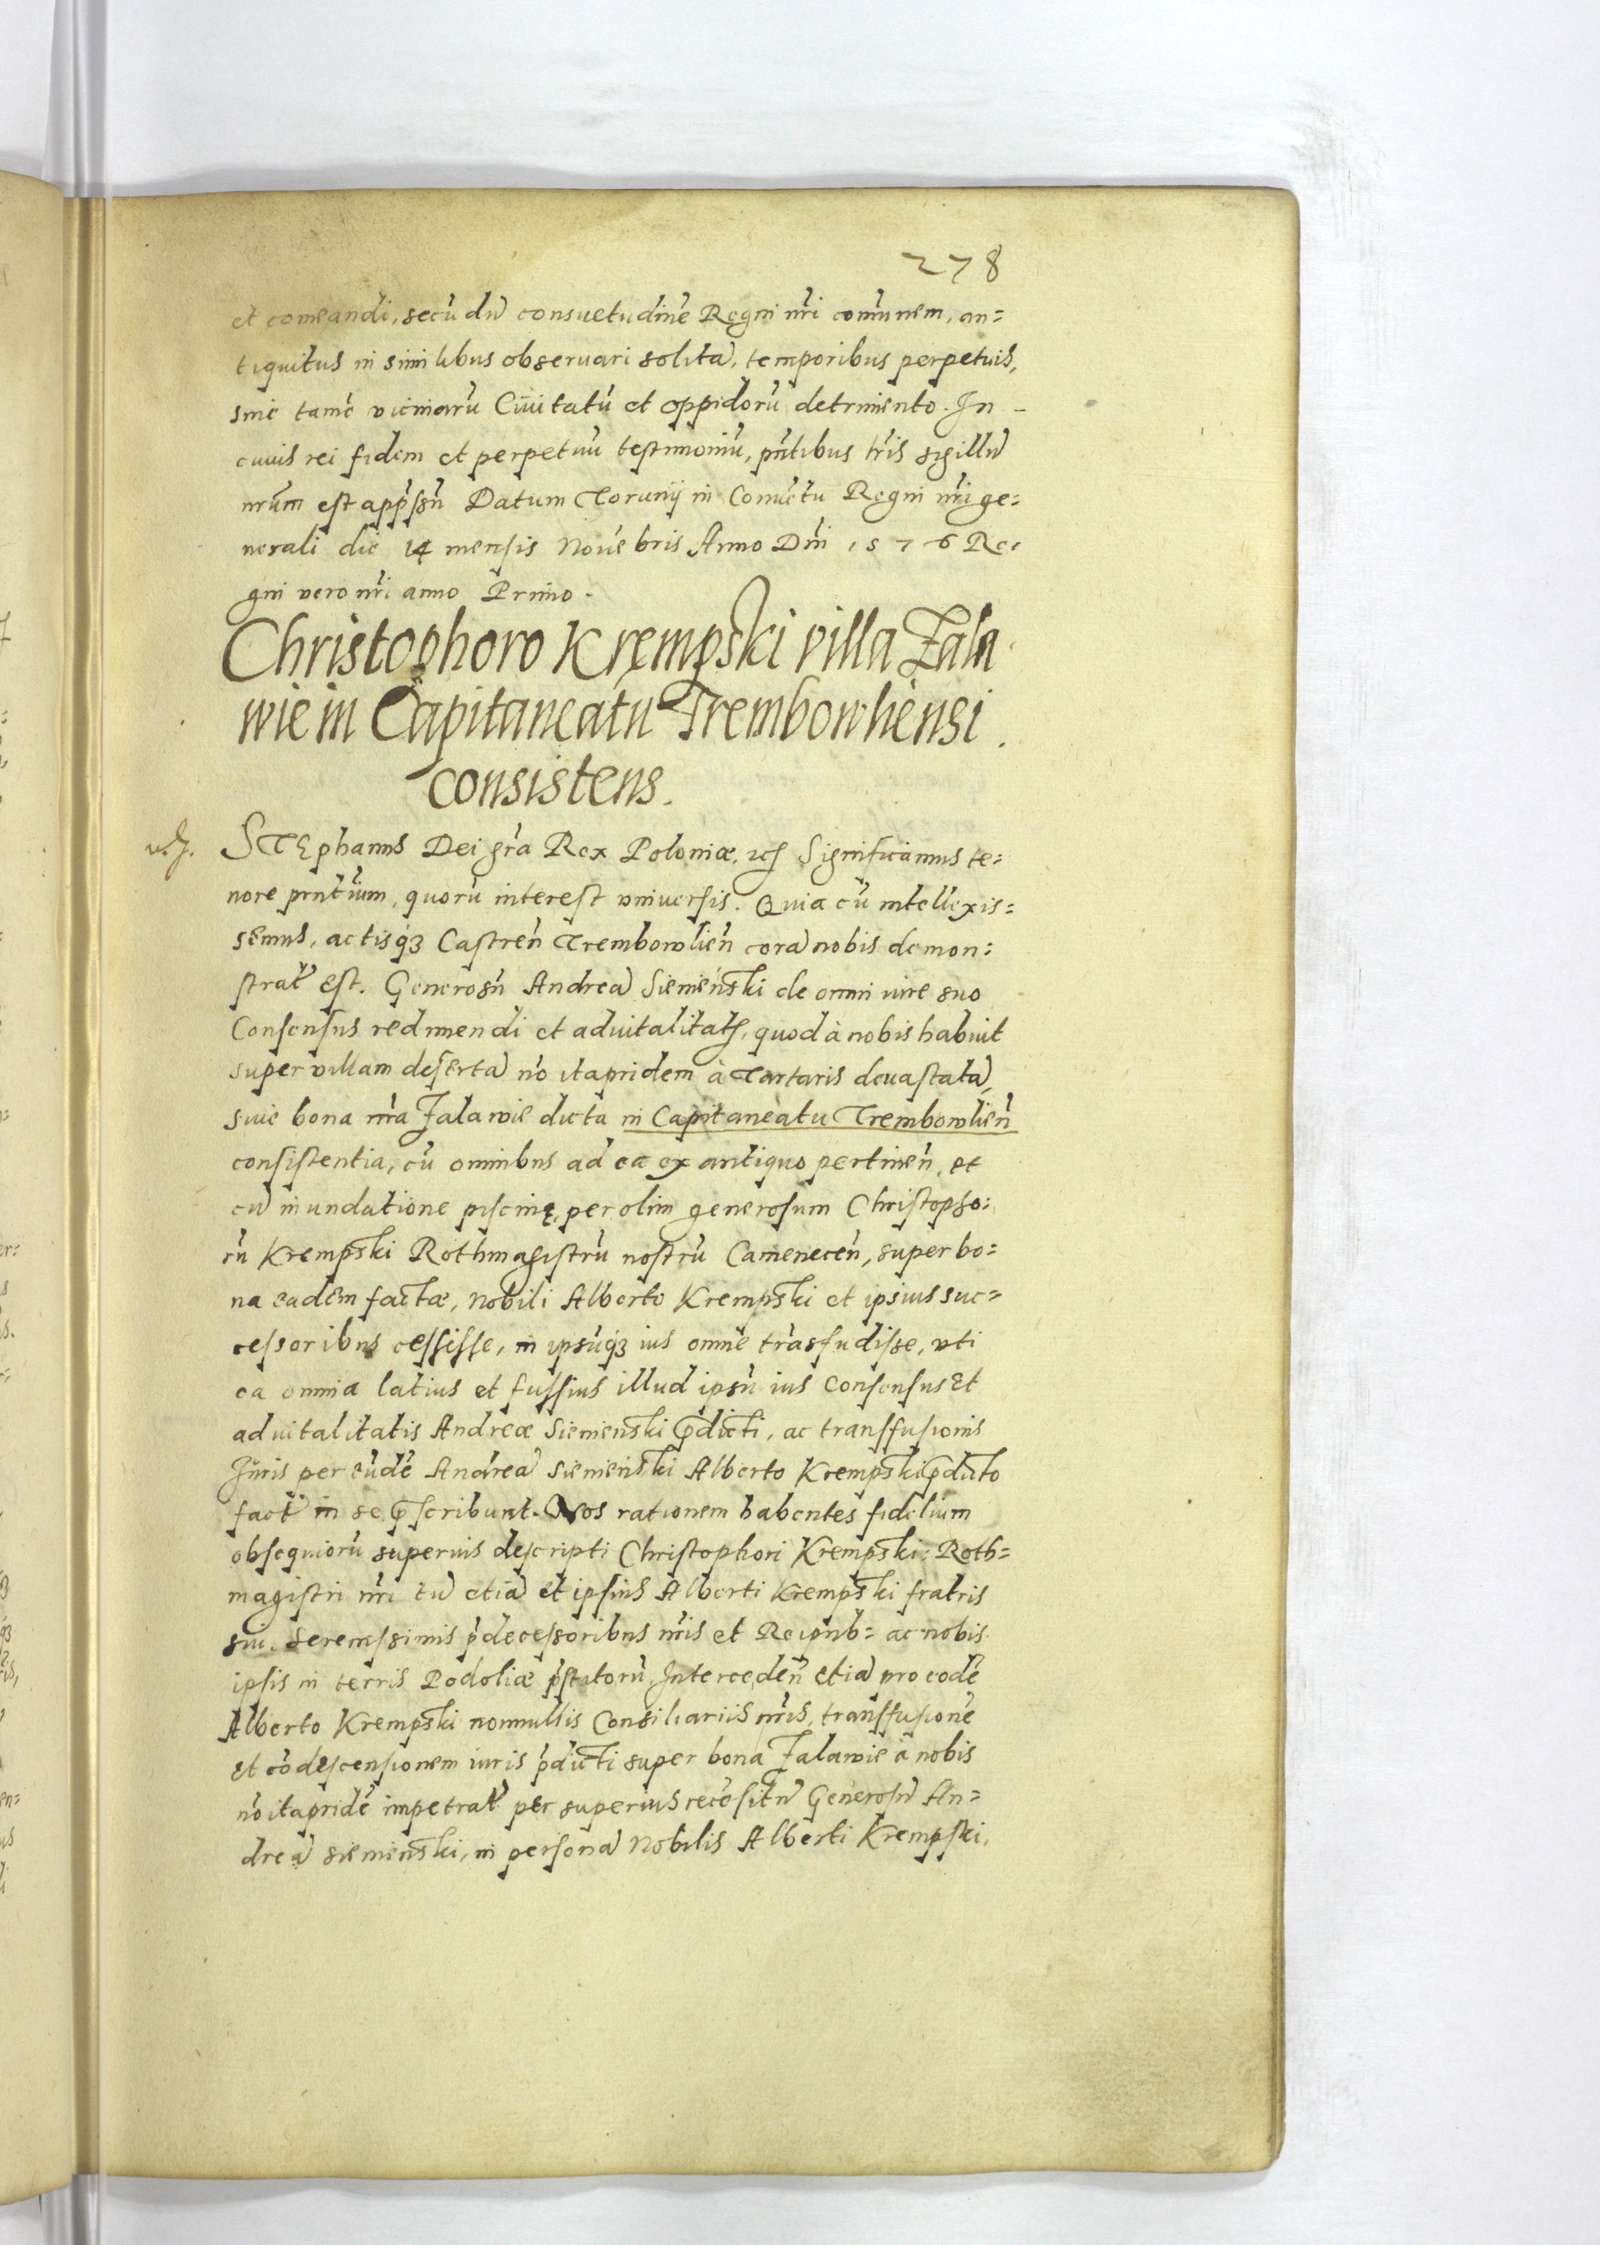 278
et comeandi, secūdū consuetudinē Regni nr̄i com̄unem, an=
tiquitus in similibus obseruari solitā, temporibus perpetuis,
sine tamē vicinarū Ciuitatū et oppidorū detrimento. In -
cuius rei fidem et perpetuū testimoniū, pn̄tibus lr̄is sigillū
nr̄um est app̄ssū Datum Torunij in Conuētu Regni nr̄i ge=
nerali die 14 mensis Nouēbris Anno Dn̄i 1576 Re=
gni vero nr̄i anno Primo.
Christophoro Kręmpski villa Zala
wie in Capitaneatu Trembowliensi
consistens.
STEphanus Dei gr̄a Rex Poloniæ, ꝛcꝭ Significamus te=
nore pn̄tium, quorū interest vniuersis. Quia cū intellexis=
semus, actisq́ꝫ Castren̄ Trembowlien̄ corā nobis demon=
strat̄ est. Generosū Andreā Siemieński de omni iure suo
Consensus redimendi et aduitalitatꝭ, quod à nobis habuit
super villam desertā nō itapridem à Tartaris deuastatā,
siue bona nr̄a Zalawie dicta in Capitaneatu Trembowlien̄
consistentia, cū omnibus ad ea ex antiquo pertinen̄, et
cū inundatione piscinę, per olim generosum Christopho=
rū Krempski Rothmagistrū nostrū Camenecen̄, super bo=
na eadem factæ, Nobili Alberto Krempski et ipsius suc=
cessoribus cessisse, in ipsūq́ꝫ ius omne trāsfudisse, vti
ea omnia latius et fussius illud ipsū ius Consensus Et
aduitalitatis Andreæ Siemienski p̄dicti, ac transfusionis
Juris per eūdē Andreā Siemienski Alberto Krempski p̄dicto
fact̄ in se p̄scribunt. Nos rationem habentes fidelium
obsequiorū superius descripti Christophori Krempski Roth=
magistri nr̄i tū etiā et ipsius Alberti Krempski fratris
sui, Serenissimis p̄decessoribus nr̄is et Reipub= ac nobis
ipsis in terris Podoliæ p̄stitorū Interceden̄ etiā pro eodē
Alberto Krempski nonnullis Consiliariis nr̄is, transfusionē
et cōdescensionem iuris p̄dicti super bona Zalawie à nobis
nō itapridē impetrat̄ per superius recēsitū Generosū An=
dreā Siemienski, in personā Nobilis Alberti Krempski,